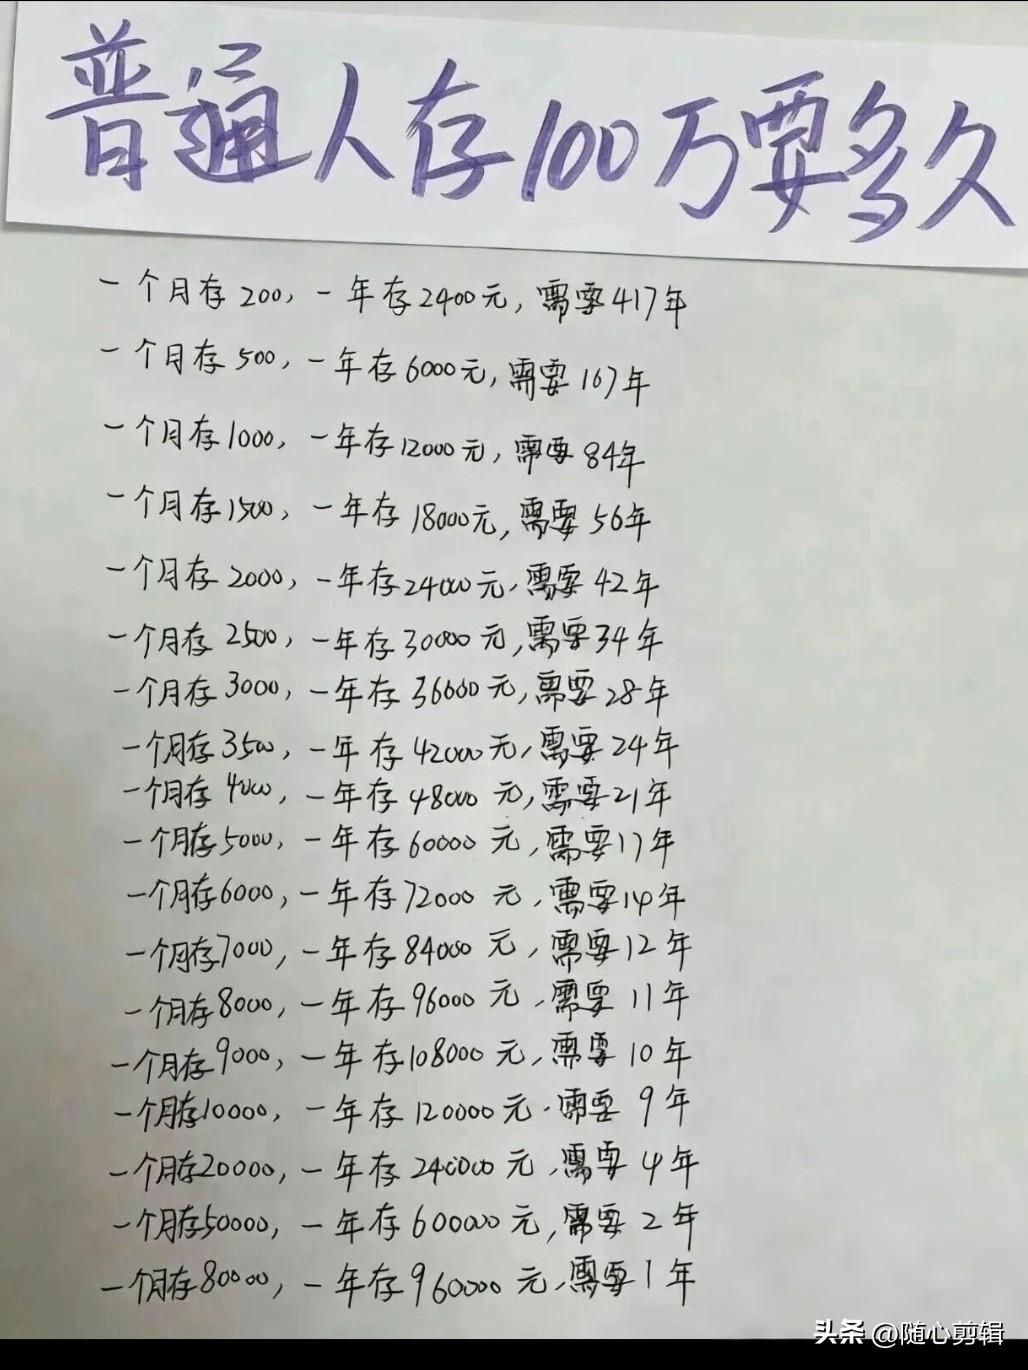 普通人存100万要多久
一个月存200，一年存2400元，需要417年
一个月存500，一年存6000元，需要167年
一个月存1000，一年存12000元，需要84年
一个月存1500，一年存18000元，需要56年
一个月存2000，一年存24000元，需要42年
一个月存2500，一年存30000元，需要34年
一个月存3000，一年存36000元，需要28年
一个月存3500，一年存42000元，需要24年
一个月存4000，一年存48000元，需要21年
一个月存5000，一年存60000元，需要17年
一个月存6000，一年存72000元，需要14年
一个月存7000，一年存84000元，需要12年
一个月存8000，一年存96000元，需要11年
一个月存9000，一年存108000元，需要10年
一个月存10000，一年存120000元，需要9年
一个月存20000，一年存240000元，需要4年
一个月存50000，一年存600000元，需要2年
一个月存80000，一年存960000元，需要1年
头条 @随心剪辑